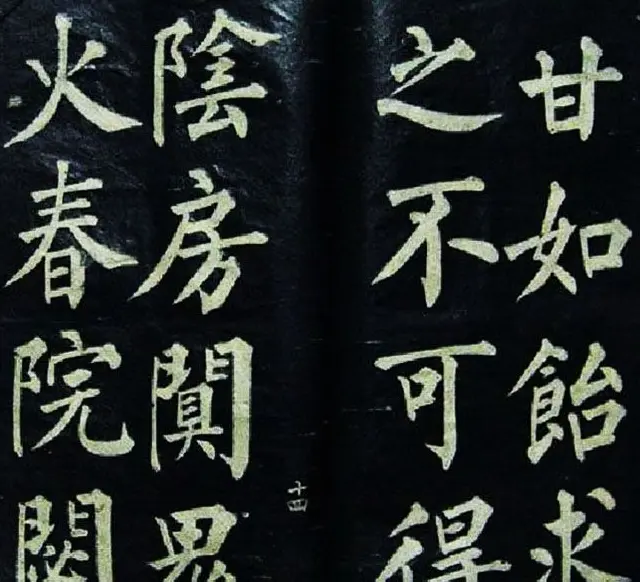 甘如飴求
之不可得
十四
陰房闐鬼
火春院